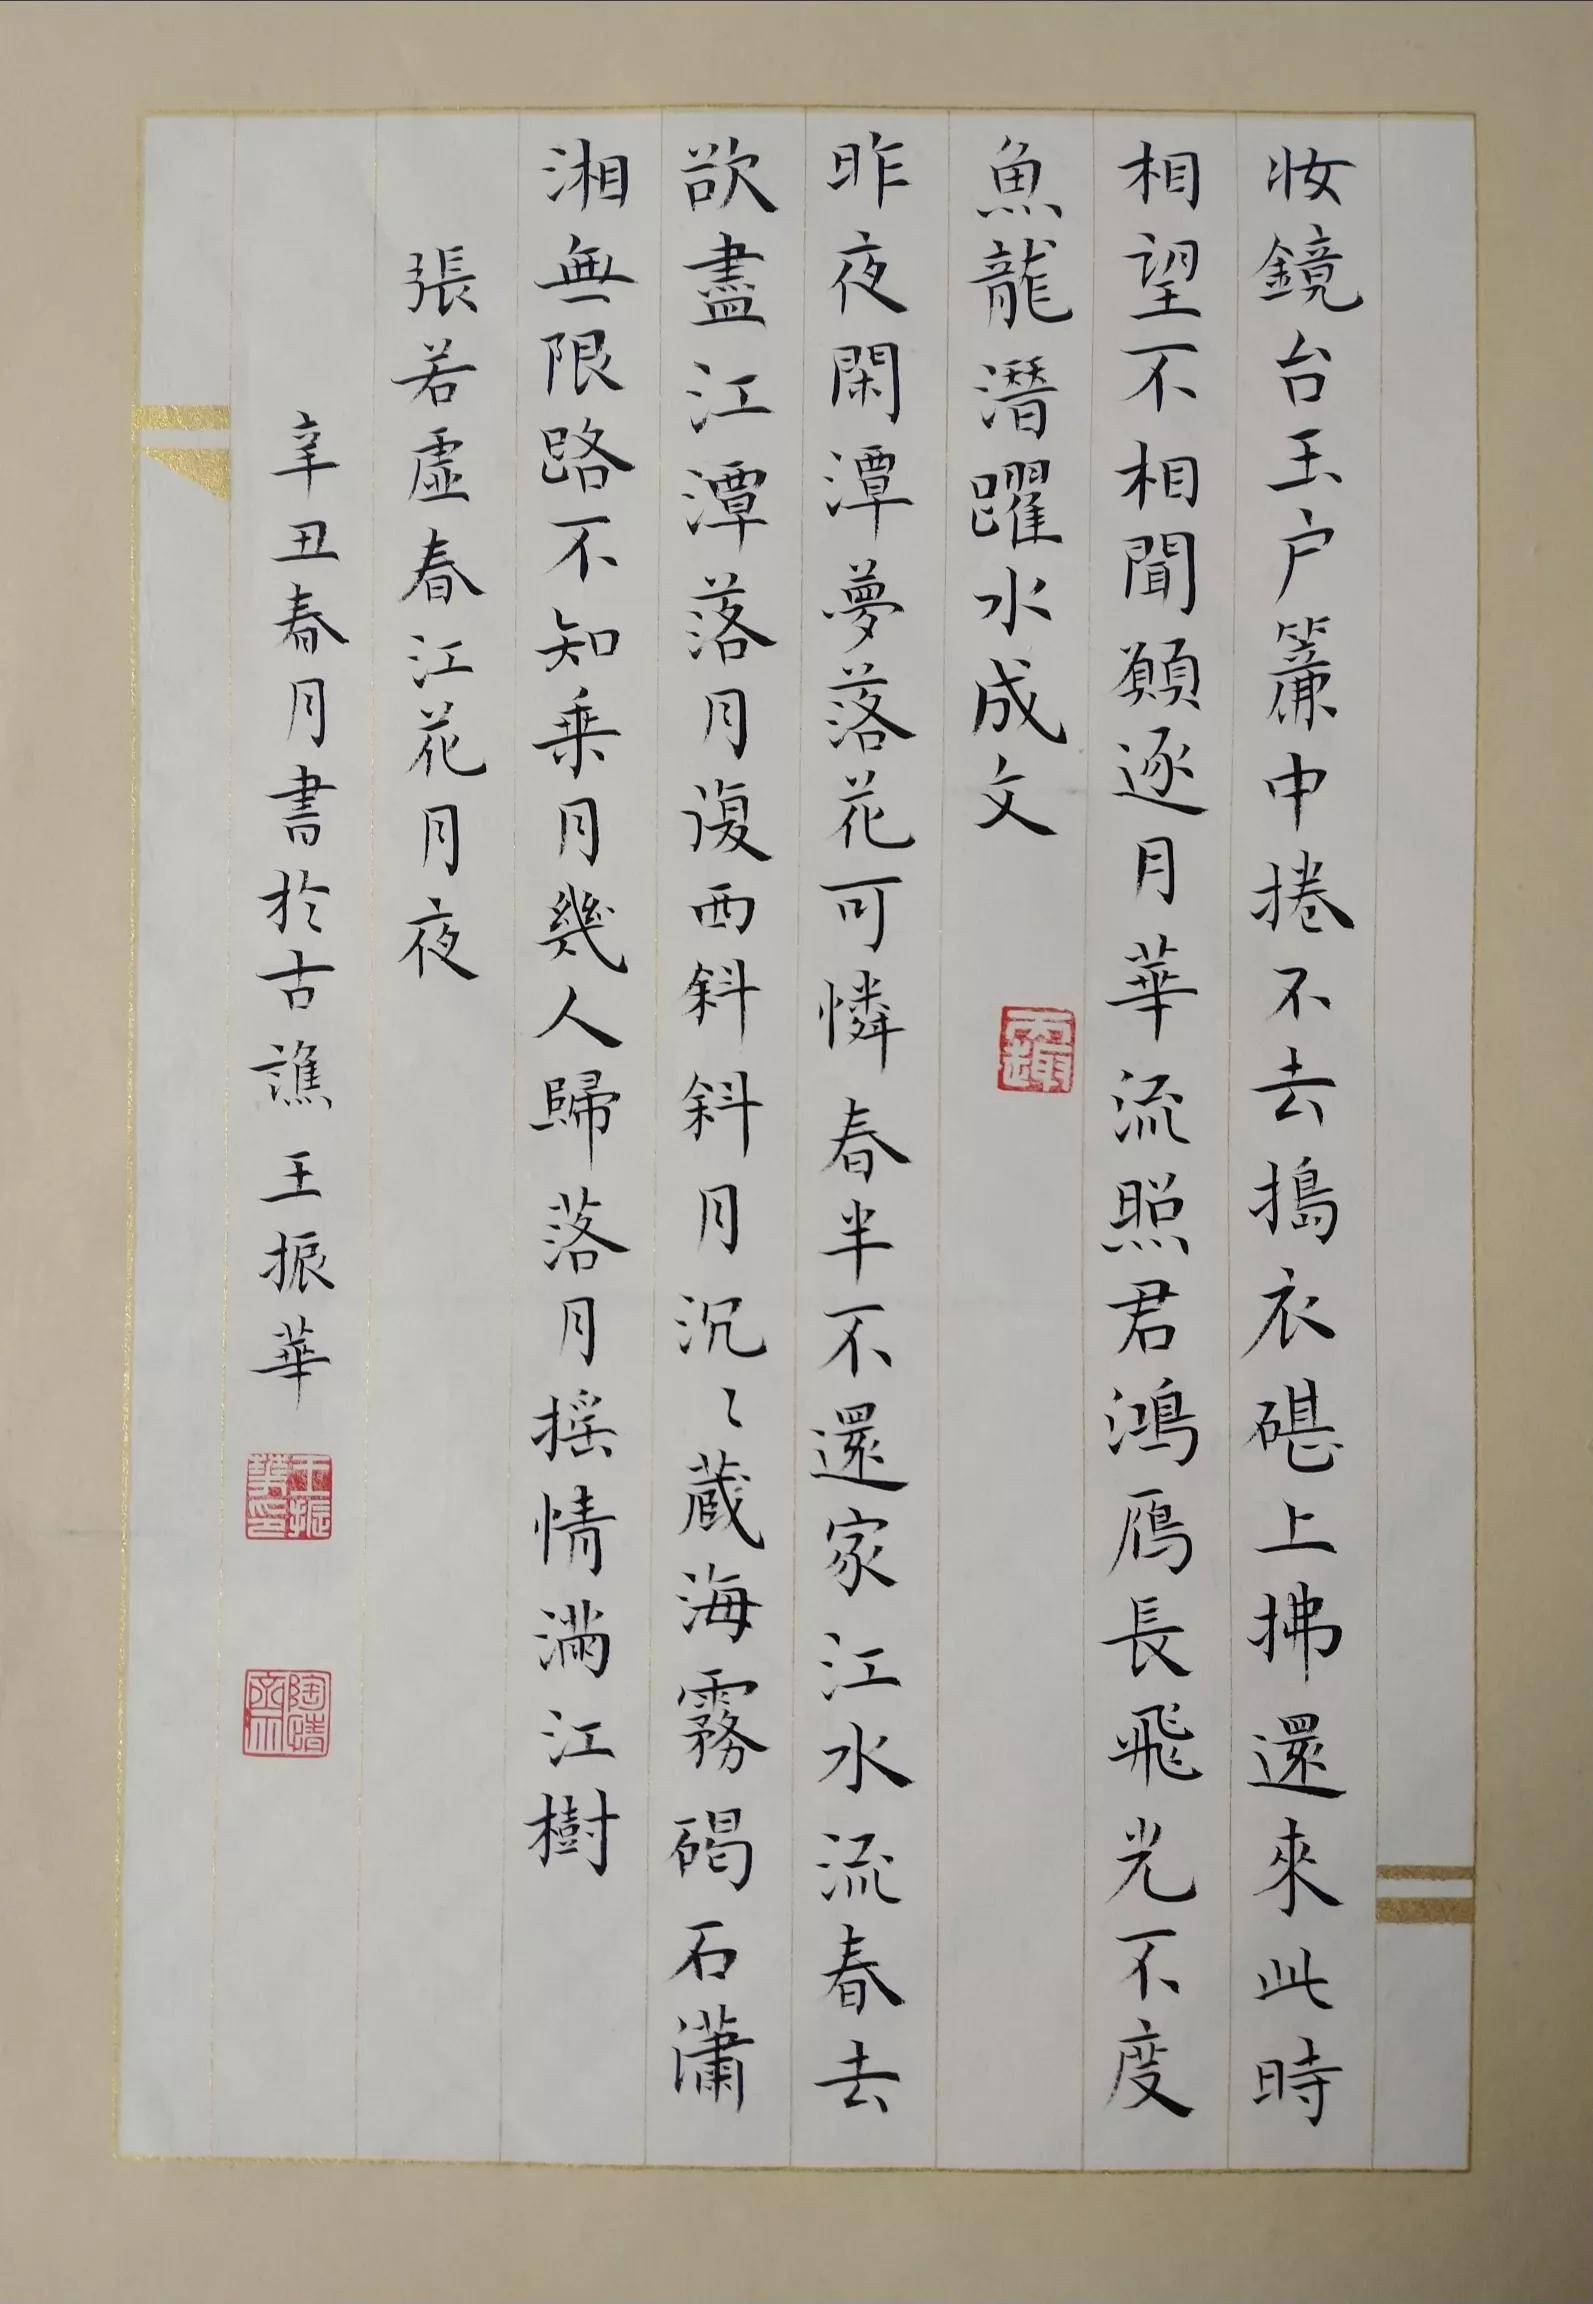 妝鏡台玉户簾中捲不去搗衣碪上拂還來此時
相望不相聞願逐月華流照君鴻鴈長飛光不度
魚龍潛躍水成文
昨夜閑潭夢落花可憐春半不還家江水流春去
欲盡江潭落月復西斜斜月沉〻蔵海霧碣石瀟
湘無限路不知乗月幾人歸落月摇情滿江樹
張若虛春江花月夜
辛丑春月書於古譙王振華
王振華印